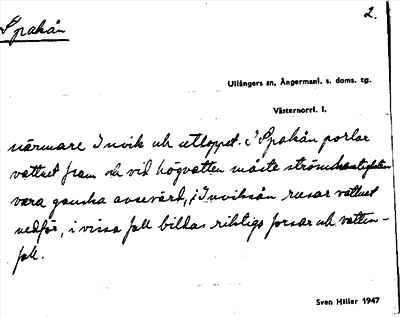 Spakån
2.
Ullångers sn, Ångermanl. s. doms. tg.
Västernorrl. l.
närmare Invik och utloppet. I Spakån porlar
vattnet fram och vid högvatten måste strömhastigheten
vara ganska avsevärd, i Inviksån rusar vattnet
nedför, i vissa fall bildas riktiga forsar och vatten-
fall.
Sven Hiller 1947